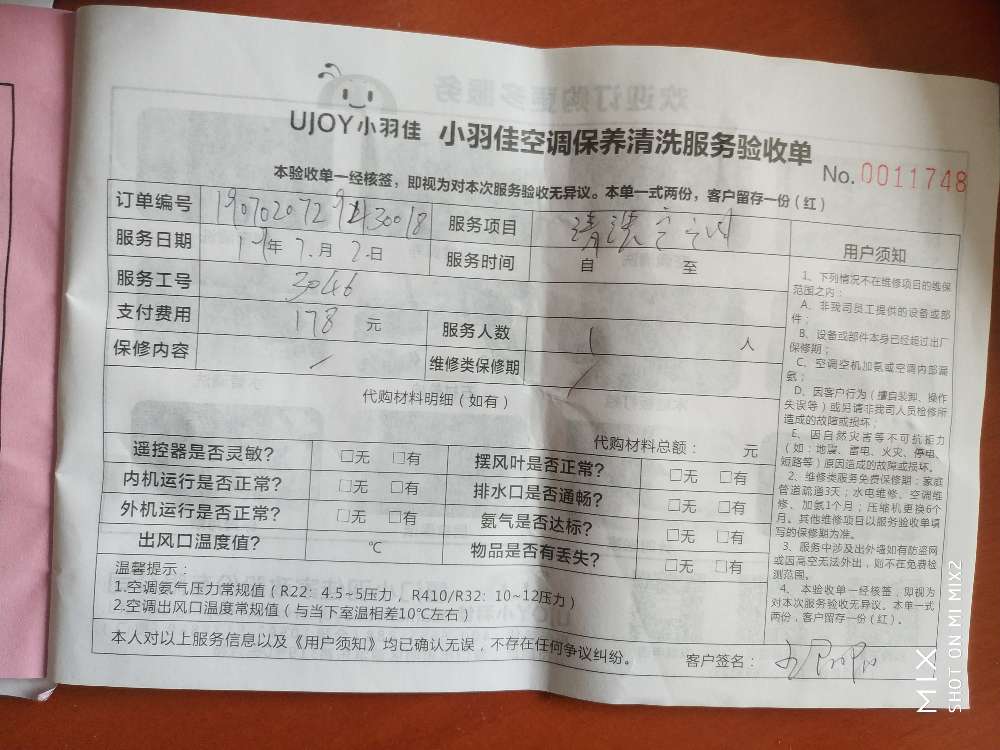 UJOY小羽佳 小羽佳空调保养清洗服务验收单
No.0011748
本验收单一经核签，即视为对本次服务验收无异议。本单一式两份，客户留存一份（红）
订单编号 服务项目 清洗空调
服务日期 19年 7.月 2.日 服务时间 自 至
服务工号 3046
支付费用 178 元 服务人数 1 人
保修内容 / 维修类保修期 /
代购材料明细（如有）
代购材料总额： 元
遥控器是否灵敏？ □无 □有 摆风叶是否正常？ □无 □有
内机运行是否正常？ □无 □有 排水口是否通畅？ □无 □有
外机运行是否正常？ □无 □有 氨气是否达标？ □无 □有
出风口温度值？ ℃ 物品是否有丢失？ □无 □有
温馨提示：
1.空调氨气压力常规值（R22：4.5~5压力，R410/R32：10~12压力）
2.空调出风口温度常规值（与当下室温相差10℃左右）
本人对以上服务信息以及《用户须知》均已确认无误，不存在任何争议纠纷。 客户签名：
用户须知
1、下列情况不在维修项目的维保
范围之内：
A、非我司员工提供的设备或部
件；
B、设备或部件本身已经超过出厂
保修期；
C、空调空机加氨或空调内部漏
氨；
D、因客户行为（擅自装卸、操作
失误等）或另请非我司人员检修所
造成的故障或损坏；
E、因自然灾害等不可抗拒力
（如：地震、雷电、火灾、停电、
短路等）原因造成的故障或损坏。
2、维修类服务免费保修期：家庭
管道疏通3天；水电维修、空调维
修、加氨1个月；压缩机更换6个
月。其他维修项目以服务验收单填
写的保修期为准。
3、服务中涉及出外墙如有防盗网
或因高空无法外出，则不在免费检
测范围。
4、本验收单一经核签，即视为
对本次服务验收无异议。本单一式
两份，客户留存一份（红）。
MIX
SHOT ON MI MIX2